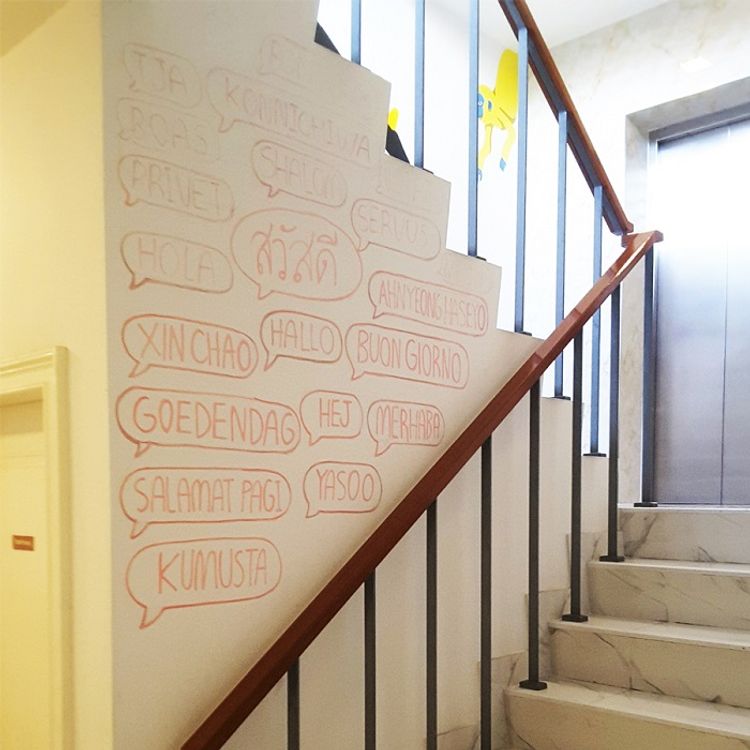 TJA
KONNICHIWA
ROAS
SHALOM
PRIVET
SERVUS
HOLA
สวัสดี
AHNYEONG HASEYO
XIN CHAO
HALLO
BUON GIORNO
GOEDENDAG
HEJ
MERHABA
SALAMAT PAGI
YASOO
KUMUSTA